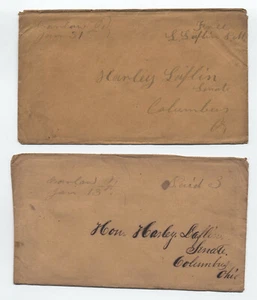 Jan 21
Free
Harley Laflin
Senate
Columbus
O
Jan 15
Paid 3
Hon. Harley Laflin
Senate
Columbus
Ohio